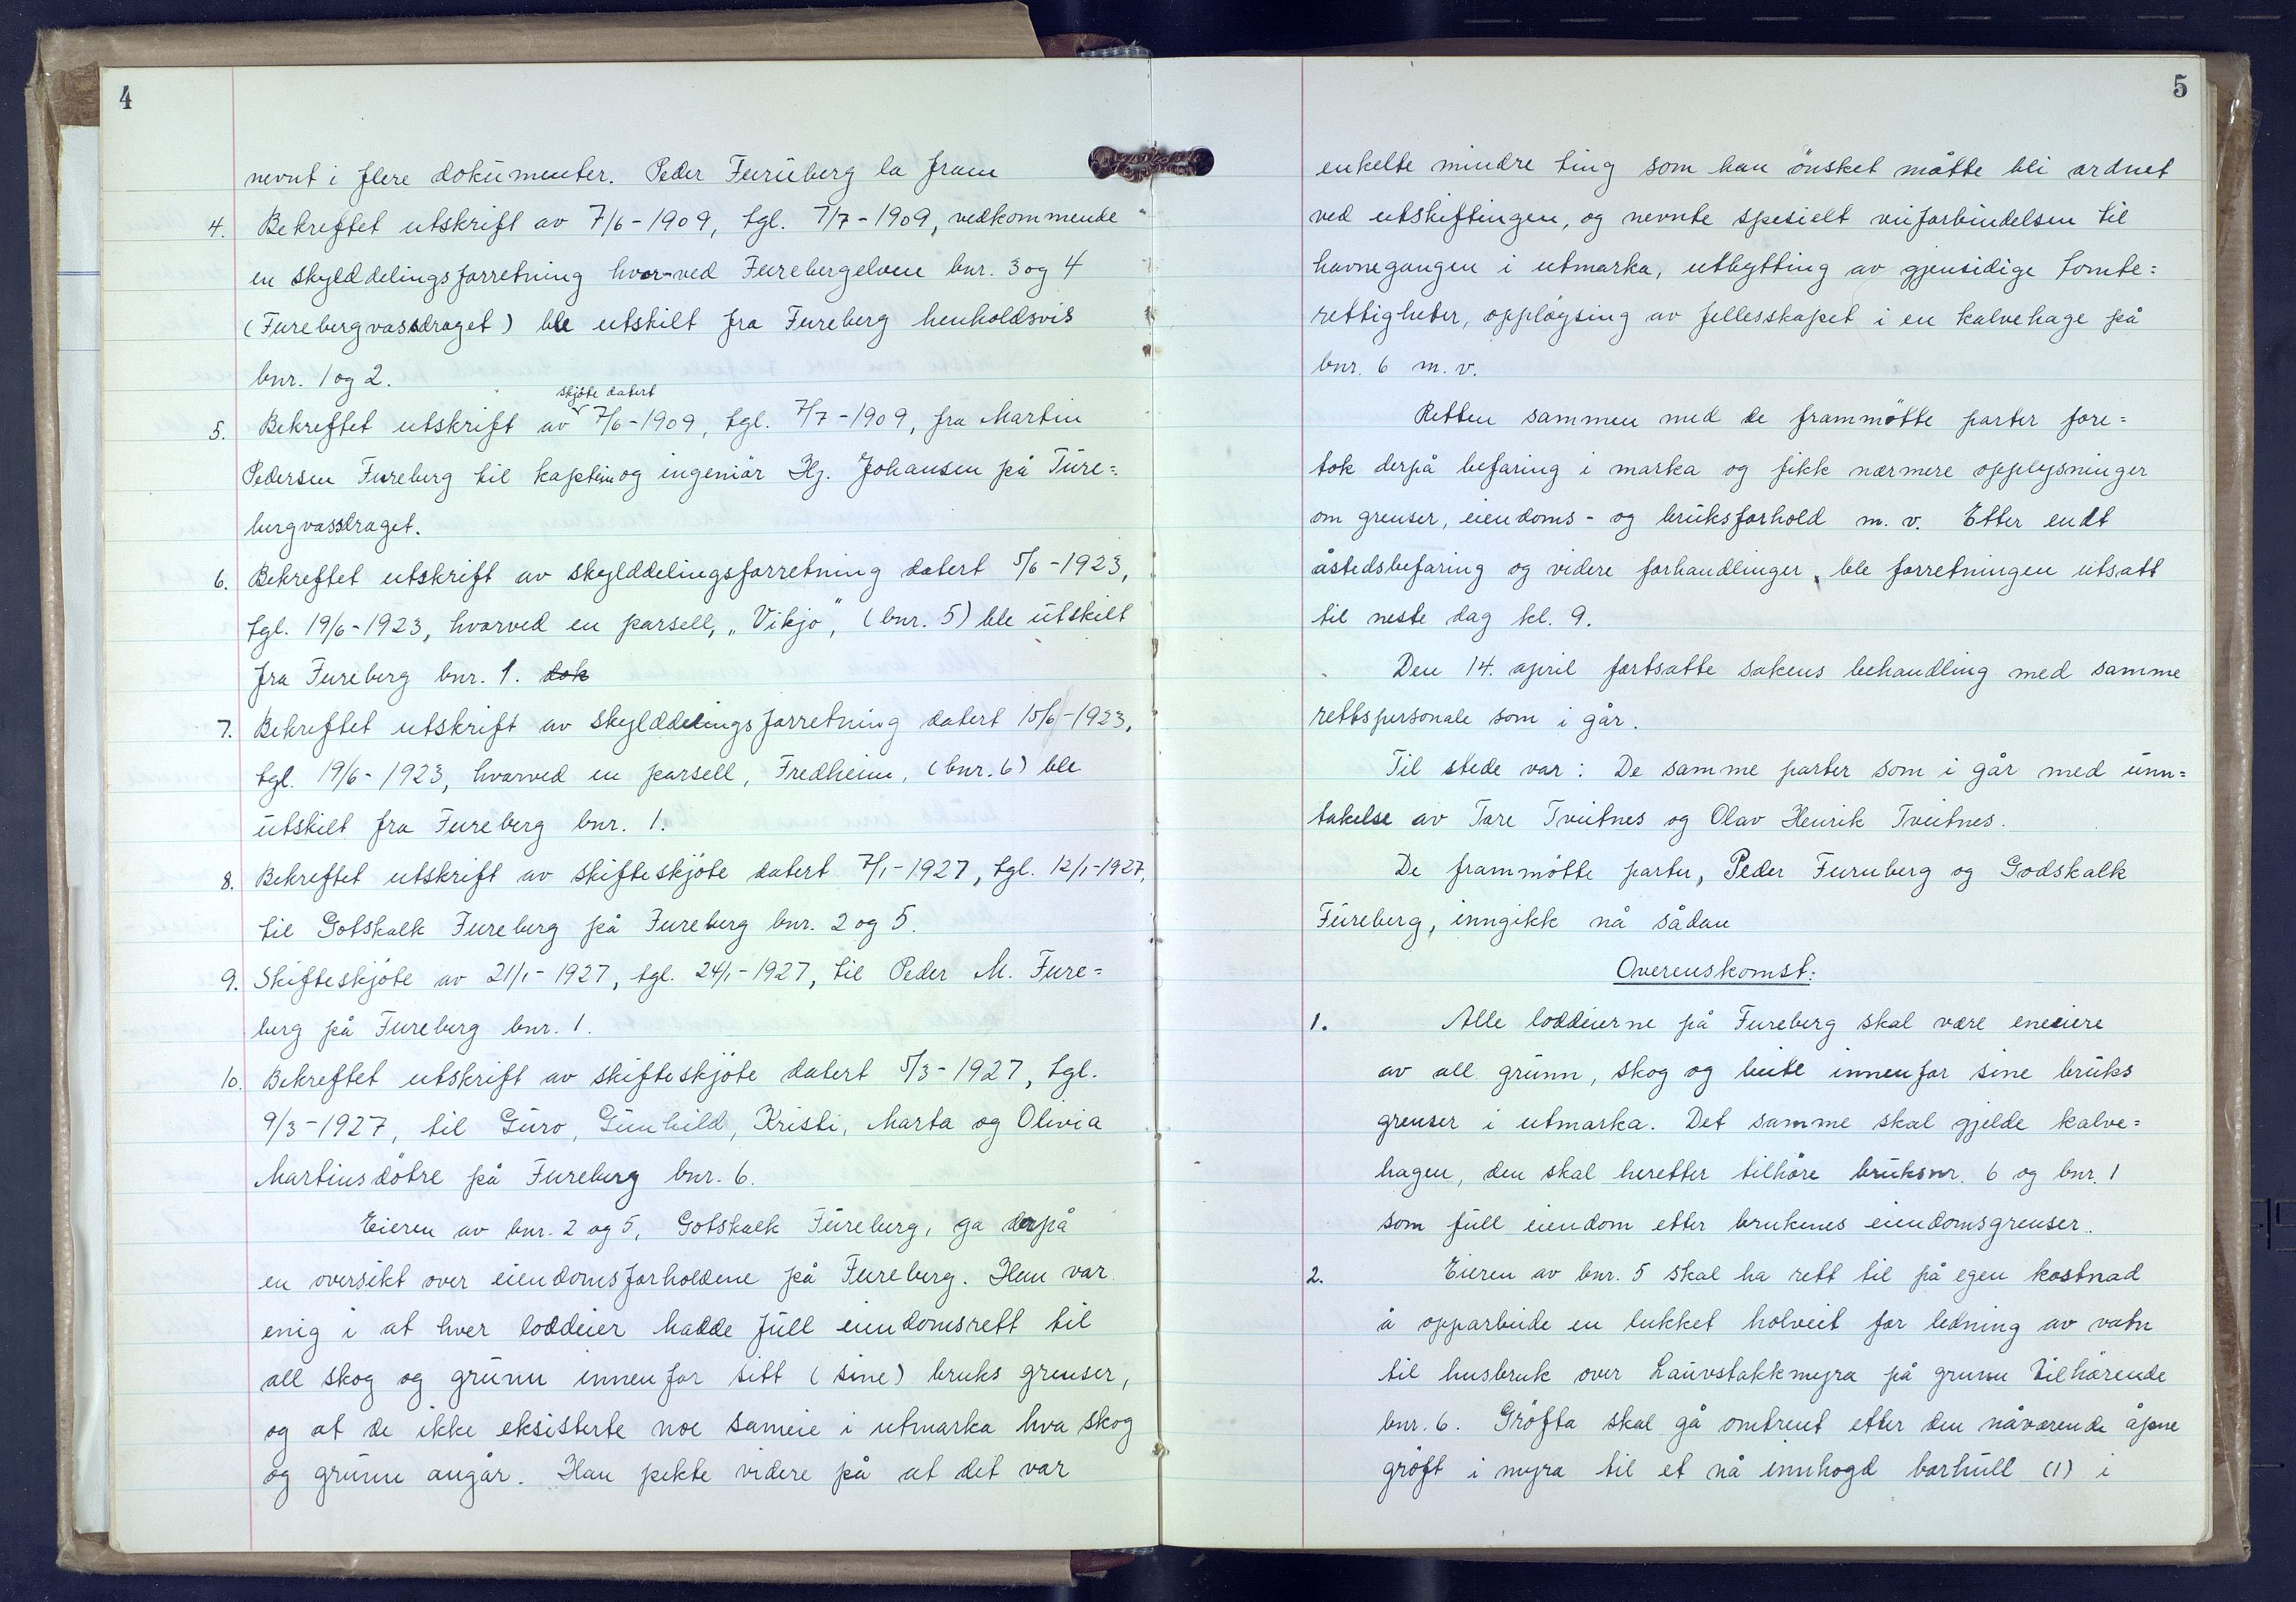 4
nevnt i flere dokumenter. Peder Fureberg la fram
4. Bekreftet utskrift av 7/6-1909, tgl. 7/7-1909, vedkommende
en skylddelingsforretning hvor-ved Furebergelven bnr. 3 og 4
(Furebergvassdraget) ble utskilt fra Fureberg henholdsvis
bnr. 1 og 2.
skjöte datert
5. Bekreftet utskrift av 7/6-1909, tgl. 7/7-1909, fra Martin
Pedersen Fureberg til kaptein og ingeniör Hj. Johansen på Fure=
bergvassdraget.
6. Bekreftet utskrift av skylddelingsforretning datert 5/6-1923,
tgl. 19/6-1923, hvorved en parsell, „Vikjo", (bnr. 5) ble utskilt
fra Fureberg bnr. 1. dok
7. Bekreftet utskrift av skylddelingsforretning datert 15/6-1923,
tgl. 19/6-1923, hvorved en parsell, Fredheim, (bnr. 6) ble
utskilt fra Fureberg bnr. 1.
8. Bekreftet utskrift av skifteskjöte datert 7/1-1927, tgl. 12/1-1927,
til Gotskalk Fureberg på Fureberg bnr. 2 og 5.
9. Skifteskjöte av 21/1-1927, tgl. 24/1-1927, til Peder M. Fure=
berg på Fureberg bnr. 1.
10. Bekreftet utskrift av skifteskjöte datert 5/3-1927, tgl.
9/3-1927, til Guro, Gunhild, Kristi, Marta og Olivia
Martinsdötre på Fureberg bnr. 6.
Eieren av bnr. 2 og 5, Gotskalk Fureberg, ga derpå
en oversikt over eiendomsforholdene på Fureberg. Han var
enig i at hver loddeier hadde full eiendomsrett til
all skog og grunn innenfor sitt (sine) bruks grenser,
og at de ikke eksisterte noe sameie i utmarka hva skog
og grunn angår. Han pekte videre på at det var
5
enkelte mindre ting som han önsket måtte bli ordnet
ved utskiftingen, og nevnte spesielt veiforbindelsen til
havnegangen i utmarka, utbytting av gjensidige tomte=
rettigheter, opplöysing av fellesskapet i en kalvehage på
bnr. 6 m. v.
Retten sammen med de frammötte parter fore=
tok derpå befaring i marka og fikk nærmere opplysninger
om grenser, eiendoms- og bruksforhold m. v. Etter endt
åstedsbefaring og videre forhandlinger, ble forretningen utsatt
til neste dag kl. 9.
Den 14. april fortsatte sakens behandling med samme
rettspersonale som i går.
Til stede var: De samme parter som i går med unn=
takelse av Tore Tveitnes og Olav Henrik Tveitnes.
De frammötte parter, Peder Fureberg og Godskalk
Fureberg, inngikk nå sådan
Overenskomst:
1. Alle loddeierne på Fureberg skal være eneeiere
av all grunn, skog og beite innenfor sine bruks
grenser i utmarka. Det samme skal gjelde kalve=
hagen, den skal heretter tilhöre bruksnr. 6 og bnr. 1
som full eiendom etter brukenes eiendomsgrenser.
2. Eieren av bnr. 5 skal ha rett til på egen kostnad
å opparbeide en lukket holveit for ledning av vatn
til husbruk over Lauvstakkmyra på grunn tilhörende
bnr. 6. Gröfta skal gå omtrent etter den nåværende åpne
gröft i myra til et nå innhogd borhull (1) i